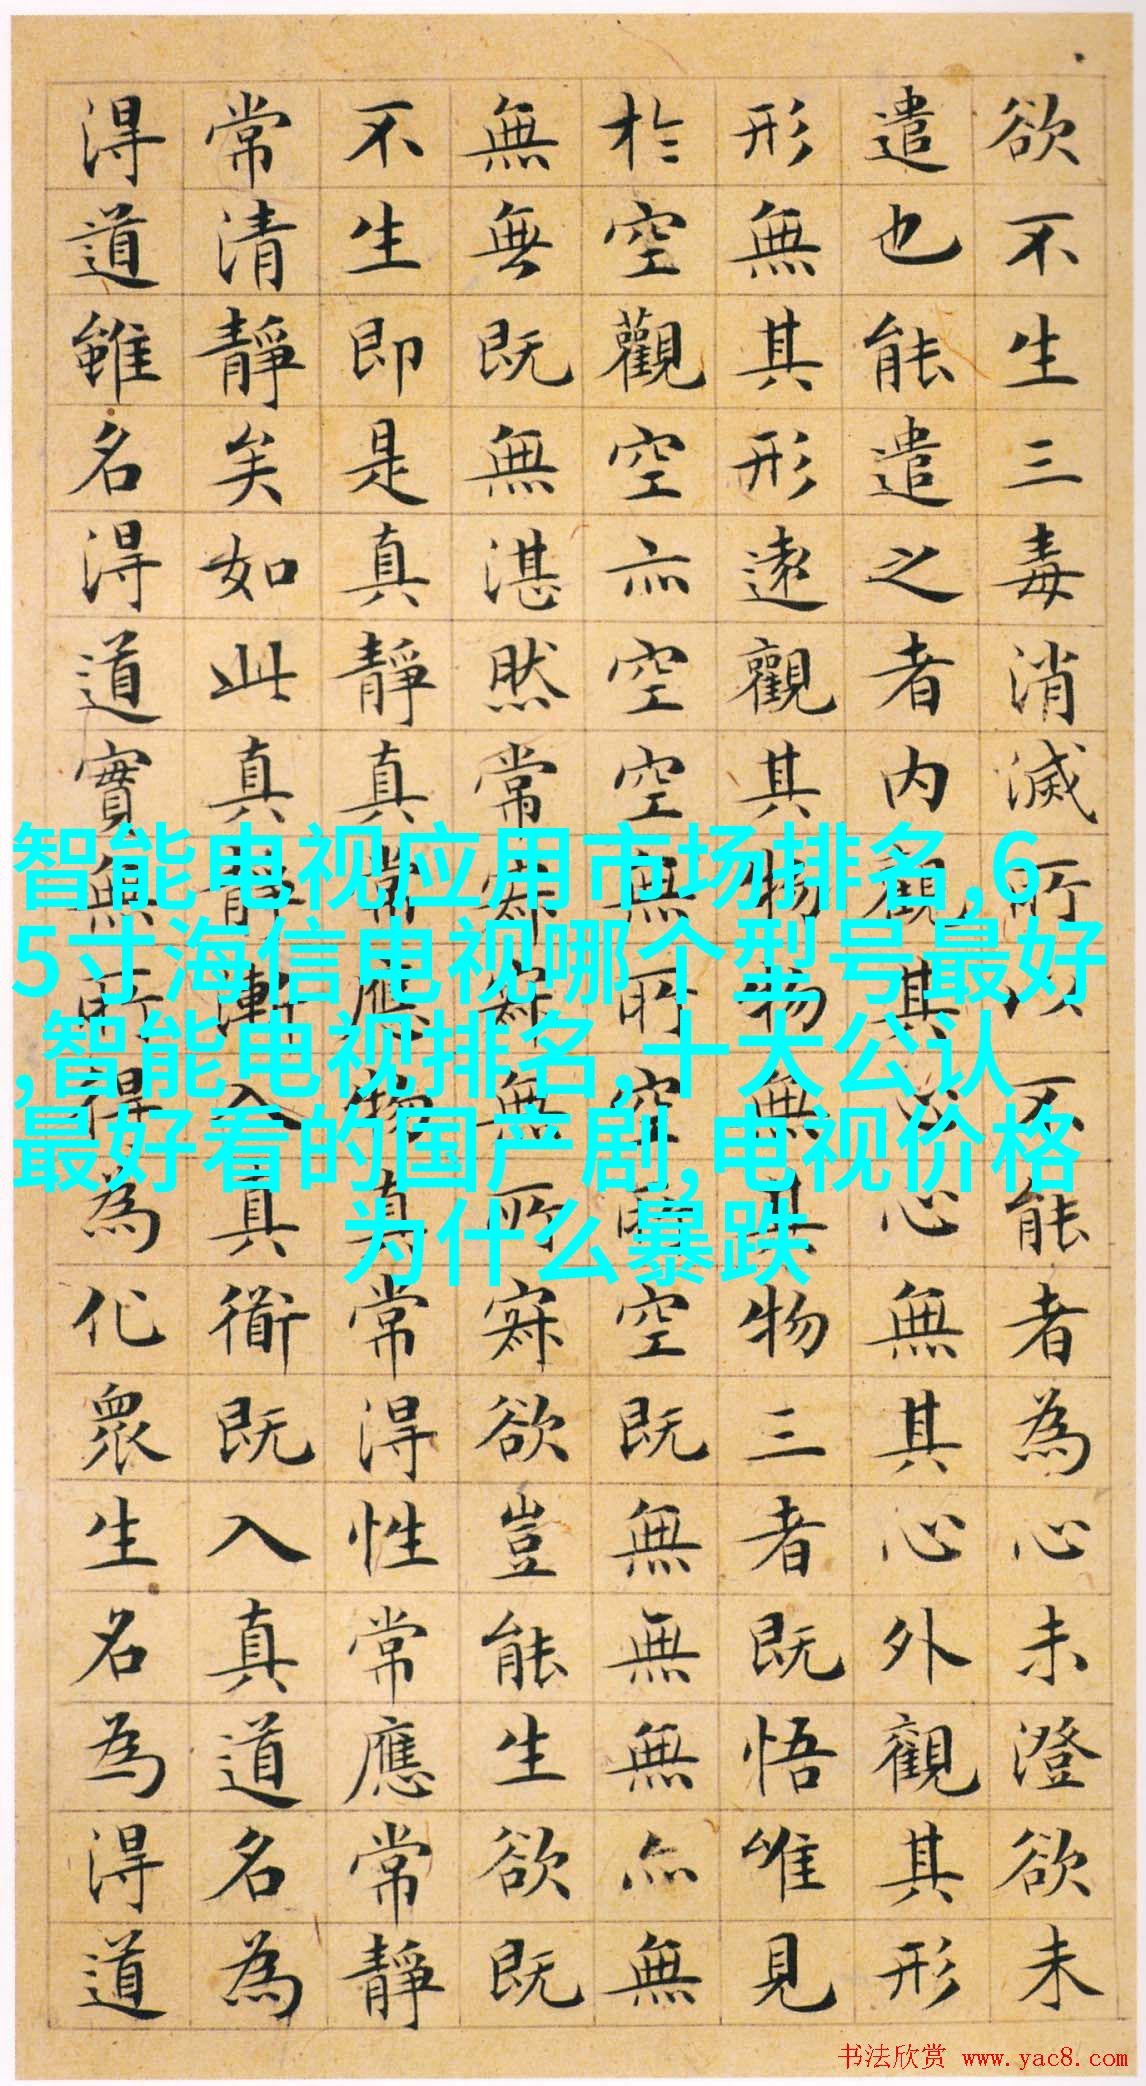 欲不生三毒消滅所以不能者為心未澄欲未
遣也能遣之者内觀其心心無其心外觀其形
形無其形遠觀其物物無其物三者既悟唯見
於空觀空亦空空無所空所空既無無無亦無
無無既無湛然常寂寂無所寂欲豈能生欲既
不生即是真靜真常應物真常得性常應常靜
常清靜矣如此真靜漸入真衜既入真道名為
得道雖名得道實無所得為化眾生名為得道
智能电视应用市场排名,6
5寸海信电视哪个型号最好
,智能电视排名,十大公认
最好看的国产剧,电视价格
为什么暴跌
书法欣赏 www.yac8.com